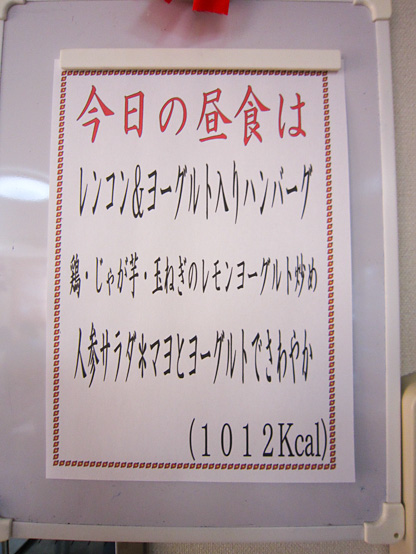 今日の昼食は
レンコン&ヨーグルト入りハンバーグ
鶏・じゃが芋・玉ねぎのレモンヨーグルト炒め
人参サラダ*マヨとヨーグルトでさわやか
(1012Kcal)